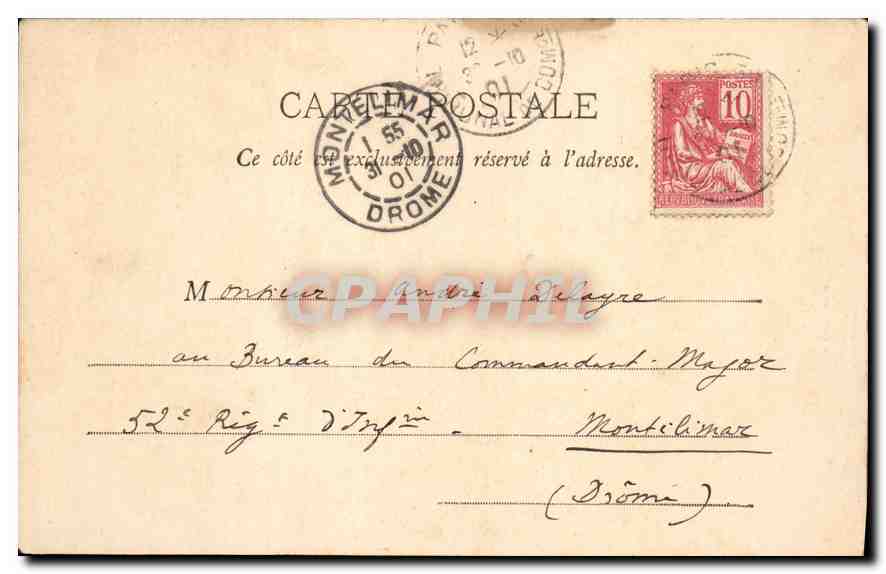 CARTE POSTALE
Ce côté est exclusivement réservé à l'adresse.
MONTÉLIMAR
1 55
31 -10
01
DROME
12
-10
01
POSTES
10
CPAPHIL
Monsieur André Delayre
au Bureau du Commandant-Major
52e Rigt d'Infrie - Montélimar
(Drôme)